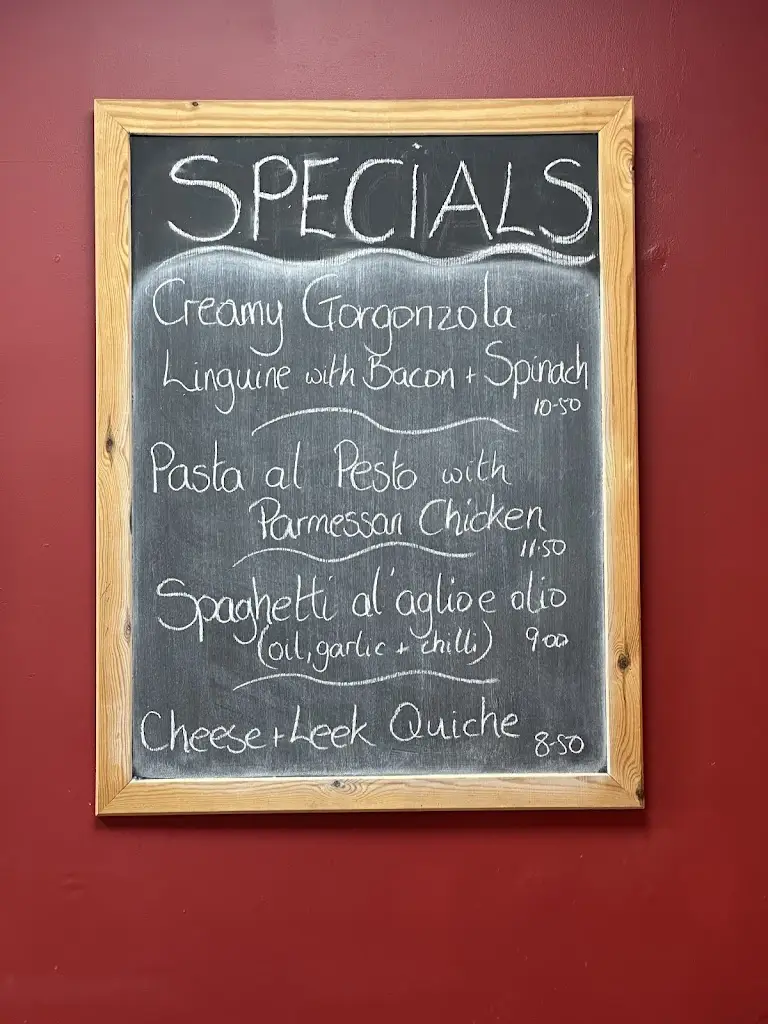 SPECIALS
Creamy Gorgonzola
Linguine with Bacon + Spinach
10-50
Pasta al Pesto with
Parmessan Chicken
11.50
Spaghetti al'aglio e olio
(oil, garlic + chilli) 9.00
Cheese + Leek Quiche 8-50